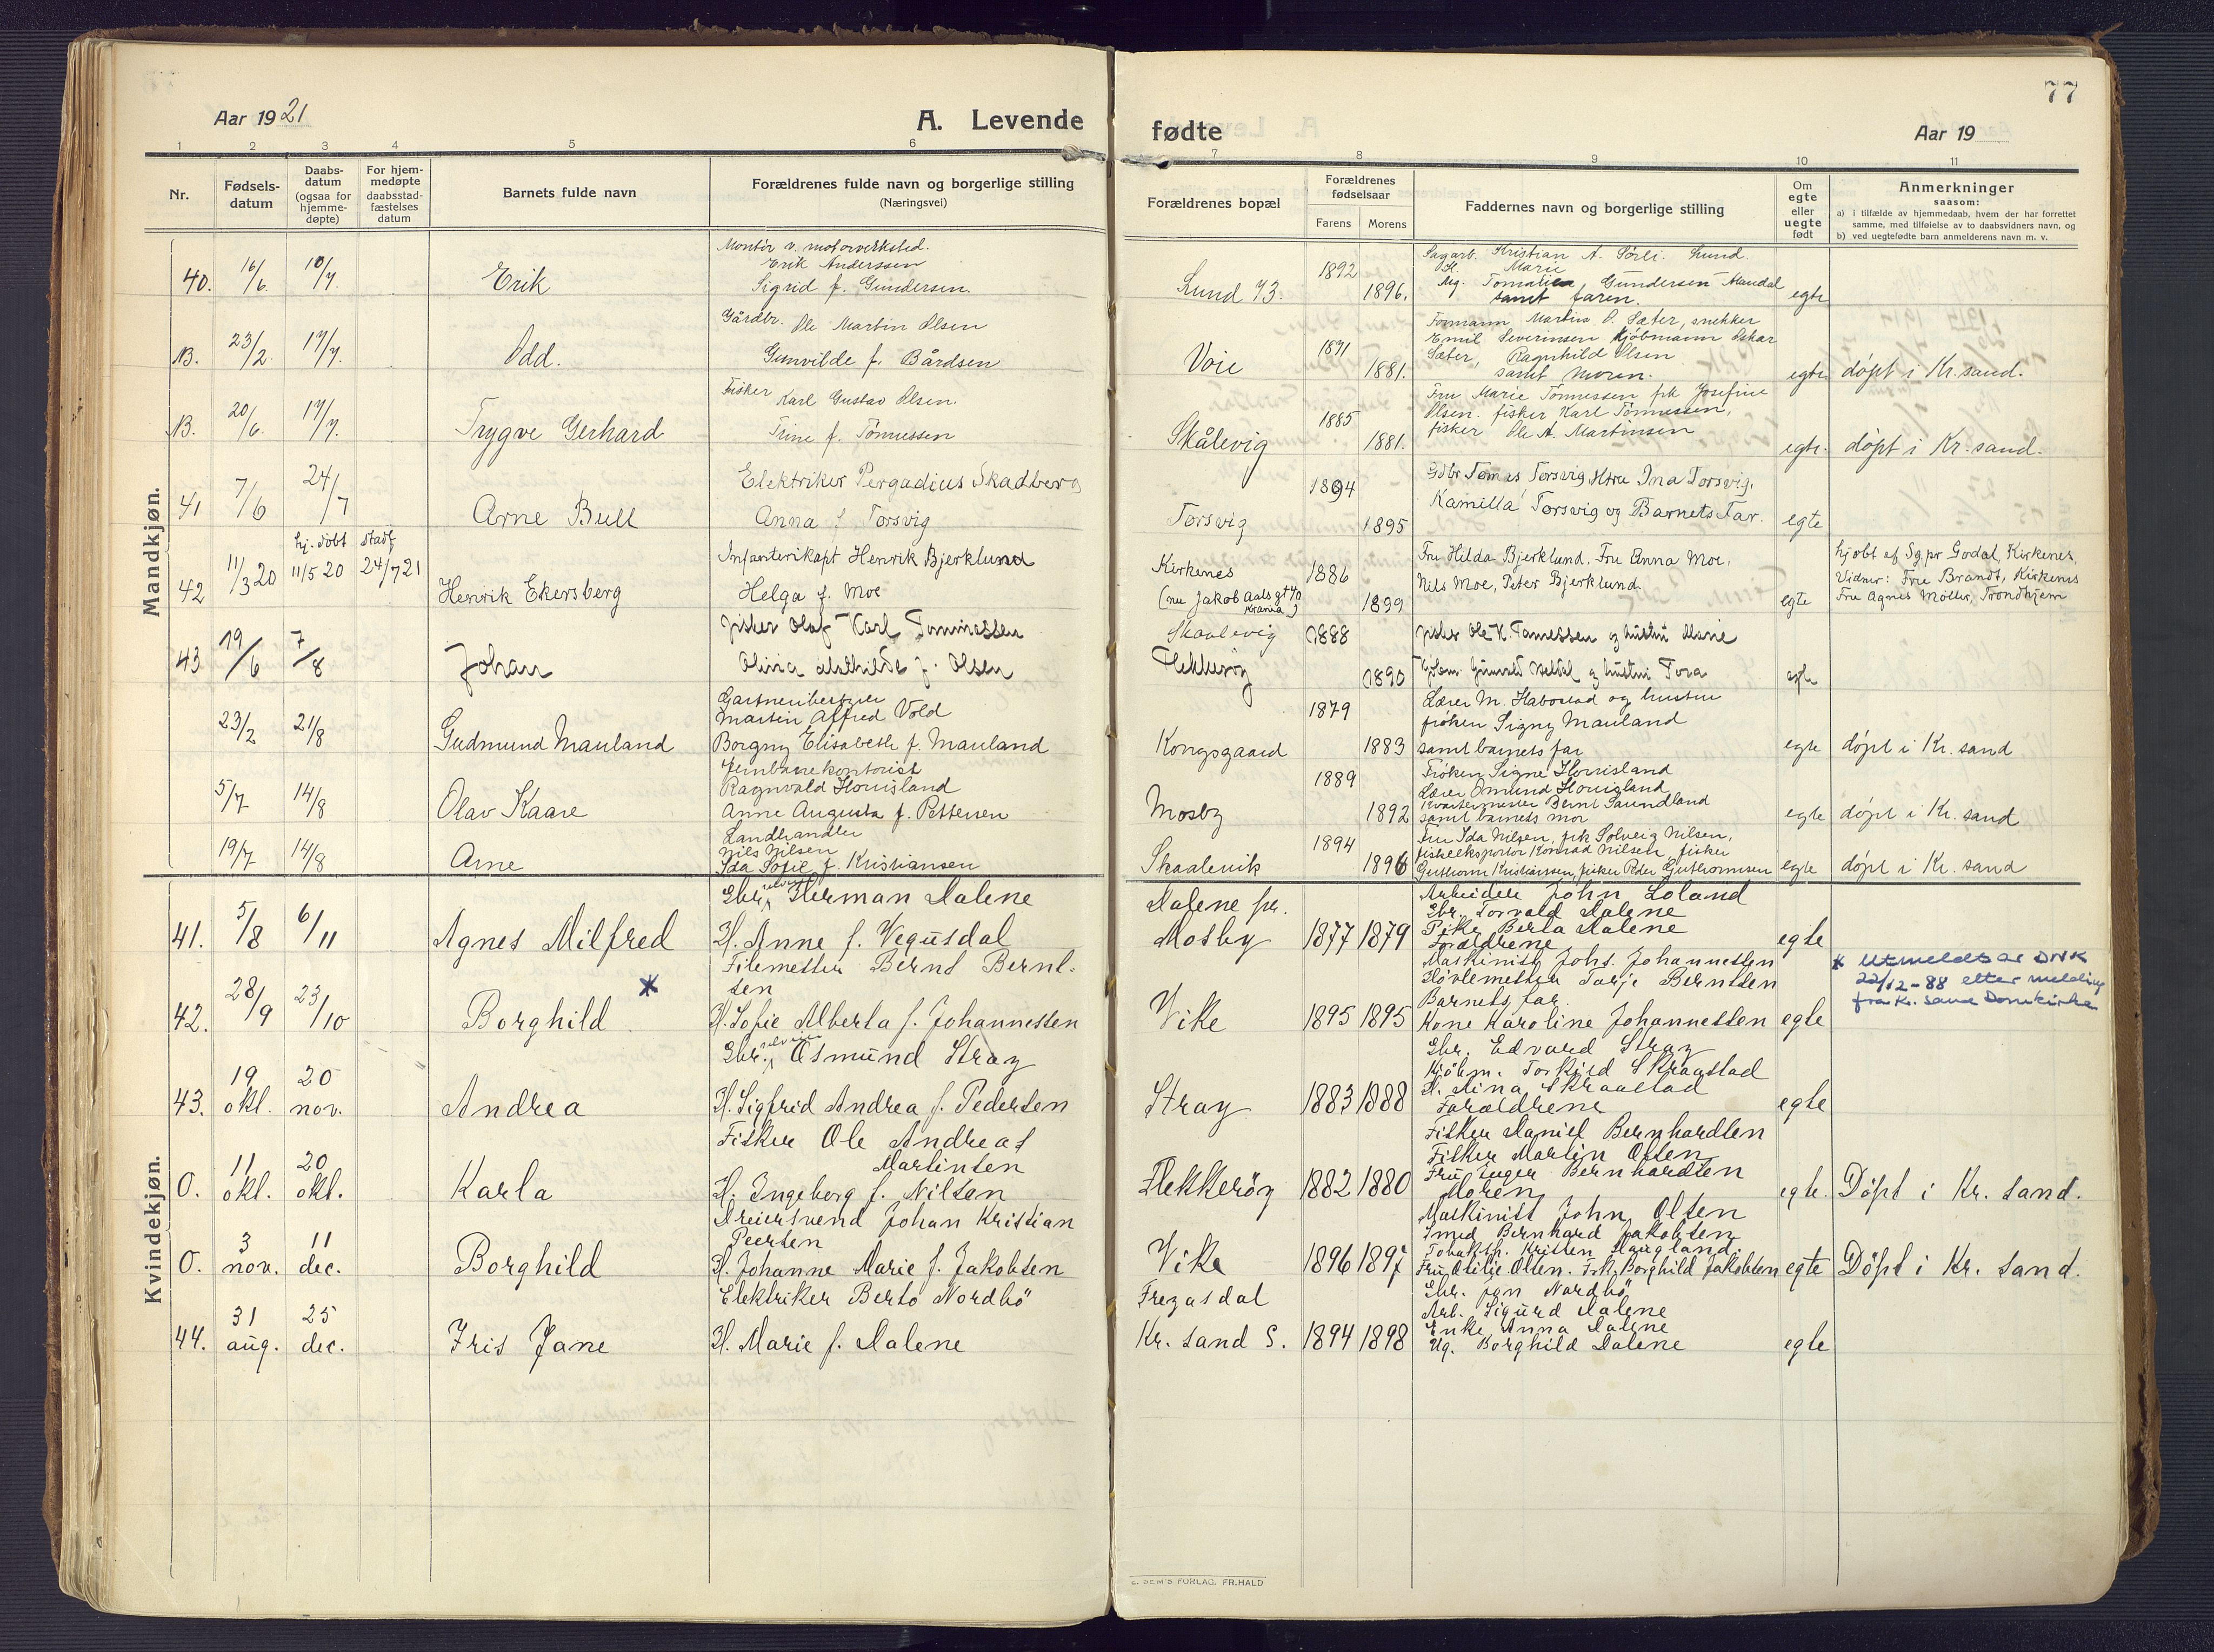 77
Aar 1921
A. Levende
fødte
Aar 19
1 2 3 4 5 6 7 8 9 10 11
Nr.
Fødsels-
datum
Daabs-
datum
(ogsaa for
hjemme-
døpte)
For hjem-
medøpte
daabsstad-
fæstelses
datum
Barnets fulde navn
Forældrenes fulde navn og borgerlige stilling
(Næringsvei)
Forældrenes bopæl
Forældrenes
fødselsaar
Farens Morens
Faddernes navn og borgerlige stilling
Om
egte
eller
uegte
født
Anmerkninger
saasom:
a) i tilfælde av hjemmedaab, hvem der har forrettet
samme, med tilføielse av to daabsvidners navn, og
b) ved uegtefødte barn anmelderens navn m. v.
Mandkjøn.
40. 16/6. 10/7. Erik
Montör v. motorverksted.
Erik Anderssen
Sigrid f. Gundersen.
Lund 73. 1892 1896.
Sagarb. Kristian A. Sörli. Lund.
H. Marie
Ug. Tomatine Gundersen Mandal
samt faren.
egte
B. 23/2. 17/7. Odd.
Gårdbr. Ole Martin Olsen
Gunvilde f. Bårdsen
Voie 1871 1881.
Formann Martin O. Sæter, snekker
Emil Severinsen kjöbmann Oskar
Sæter, Ragnhild Olsen
samt moren.
egte döpt i Kr. sand.
B. 20/6. 17/7. Trygve Gerhard
Fisker Karl Gustav Olsen.
Trine f. Tönnessen
Skålevig 1885 1881.
Fru Marie Tönnessen frk Josefine
Olsen. fisker Karl Tönnessen,
fisker Ole A. Martinsen
egte. döpt i Kr. sand.
41 7/6 24/7 Arne Bull
Elektriker Pergadius Skadberg
Anna f Torsvig
Torsvig 1894 1895
Gdbr Tomas Torsvig Hstru Ina Torsvig.
Kamilla Torsvig og Barnets Far.
egte
42 11/3 20 hj. döbt 11/5 20 stadf 24/7 21 Henrik Ekersberg
Infanterikapt Henrik Bjerklund
Helga f. Moe
Kirkenes
(nu Jakob Aals gt 40
Krania)
1886 1899
Fru Hilda Bjerklund. Fru Anna Moe,
Nils Moe, Peter Bjerklund.
egte
hjdbt af Sgpr Godal, Kirkenes,
Vidner: Fru Brandt, Kirkenes
Fru Agnes Möller, Trondhjem
43 19/6 7/8 Johan
Fisker Olaf Karl Tönnessen
Olivia Mathilde f. Olsen
Skaalevig
Flekkeröy
1888 1890
fisker Ole K. Tönnessen og hustru Marie
og hustru Tora
egte
23/2 21/8 Gudmund Mauland
Gartneribestyrer
Martin Alfred Vold
Borgny Elisabeth f. Mauland
Kongsgaard 1879 1883
Lærer M. Habostad og hustru
fröken Signy Mauland
samt barnets far
egte döpt i Kr. sand
5/7 14/8 Olav Kaare
Jernbanekontorist
Ragnvald Hornsland
Anne Augusta f. Pettersen
Mosby 1889 1892
Fröken Signe Hornsland
Lærer Omund Hornsland
Kvartermester Bernt Saundland
samt barnets mor
egte döpt i Kr. sand
19/7 14/8 Arne
Landhandler
Nils Nilsen
Ida Sofie f. Kristiansen
Skaalevik 1894 1896
Fru Ida Nilsen, frk Solveig Nilsen,
fiskeeksportör Konrad Nilsen, fisker
Guthorm Kristiansen, fisker Peder Guthormsen
egte döpt i Kr. sand
Kvindekjøn.
41. 5/8 6/11 Agnes Milfred
Gbr. selveier Herman Dalene
H. Anne f. Vegusdal
Dalene pr.
Mosby 1877 1879
Arbeider John Loland
Gbr. Torvald Dalene
Pike Berta Dalene
Forældrene
egte
42. 28/9 23/10 Borghild *
Filemester Bernt Bernt-
sen
H. Sofie Alberta f. Johannessen
Vike 1895 1895
Maskinist Johs. Johannessen
Hövlemester Tarje Berntsen
Barnets far.
Kone Karoline Johannessen
egte
* Utmeldt av DNK
22/12-88 etter melding
fra Kr. sand Domkirke
43. 19 okt. 20 nov. Andrea
Gbr. selveier Osmund Stray
H. Sigfrid Andrea f. Pedersen
Stray 1883 1888
Gbr. Edvard Stray
Kjöbm. Torkild Skraastad
H. Dina Skraastad
Forældrene
egte
O. 11 okt. 20 okt. Karla
Fisker Ole Andreas
Martinsen
H. Ingeborg f. Nilsen
Flekkeröy 1882 1880
Fisker Daniel Bernhardsen
Fisker Martin Olsen
Fru Inger Bernhardsen
Moren
egte. Döpt i Kr. sand.
O. 3 nov. 11 dec. Borghild
Dreiersvend Johan Kristian
Peersen
H. Johanne Marie f. Jakobsen
Vike 1896 1897
Maskinist John Olsen
Smed Bernhard Jakobsen
Tobaksh. Kristen Haugland.
Fru Otilie Olsen. Frk. Borghild Jakobsen
egte Döpt i Kr. sand.
44. 31 aug. 25 dec. Iris Jane
Elektriker Berto Nordbö
H. Marie f. Dalene
Fregasdal
Kr. sand S. 1894 1898
Gbr. Jon Nordbö
Arb. Sigurd Dalene
Enke Anna Dalene
Ug. Borghild Dalene
egte
E. SEM'S FORLAG. FR.HALD